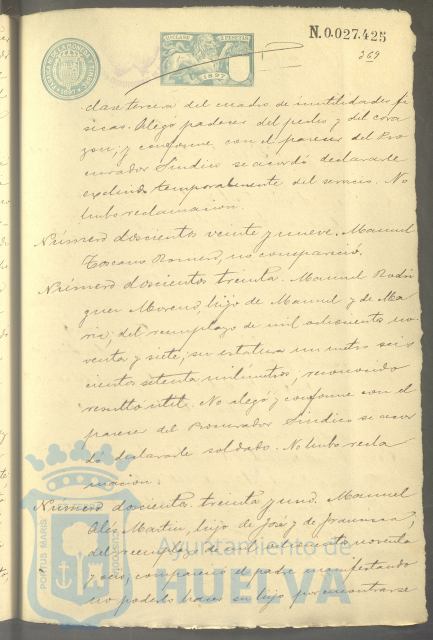 N.0.027.425
369
1897
clase tercera del cuadro de inutilidades fi
sicas. Alegó padecer del pecho y del cora
zon; y conforme con el parecer del Pro
curador Síndico se acordó declararle
excluido temporalmente del servicio. No
hubo reclamacion.
Número doscientos veinte y nueve. Manuel
Toscano Romero, no compareció.
Número doscientos treinta. Manuel Rodri
guez Moreno, hijo de Manuel y de Ma
ria, del reemplazo de mil ochocientos no
venta y siete; su estatura un metro seis
cientos setenta milimetros, reconocido
resultó util. No alegó y conforme con el
parecer del Procurador Síndico se acor
dó declararle soldado. No hubo recla
macion.
Número doscientos treinta y uno. Manuel
Martin, hijo de José y de Francisca,
del reemplazo de mil ochocientos noventa
y seis, compareció el padre manifestando
no poderlo hacer su hijo por encontrarse
Ayuntamiento de
HUELVA
PORTUS MARIS